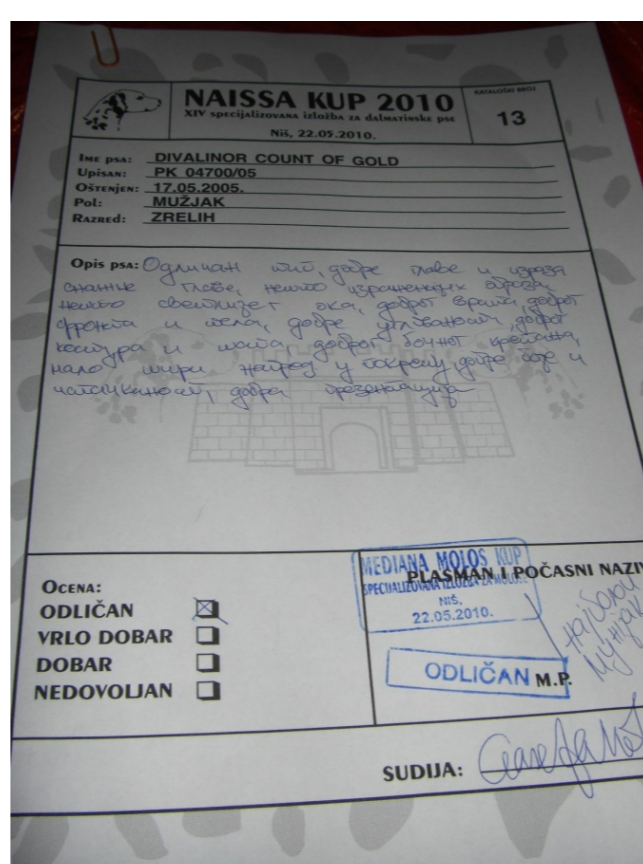 NAISSA KUP 2010
XIV specijalizovana izložba za dalmatinske pse
Niš, 22.05.2010.
KATALOŠKI BROJ
13
Ime psa: DIVALINOR COUNT OF GOLD
Upisan: PK 04700/05
Oštenjen: 17.05.2005.
Pol: MUŽJAK
Razred: ZRELIH
Opis psa: Одличан тип, добре главе и израза
снажне главе, нешто израженијих образа,
нешто светлијег ока, доброг врата, доброг
фронта и тела, добре углованости, доброг
костура и шапа, доброг бочног кретања,
мало шири напред у покрету, добре боје и
истачканости, добра презентација
Ocena:
ODLIČAN
VRLO DOBAR
DOBAR
NEDOVOLJAN
MEDIANA MOLOS KUP
SPECIJALIZOVANA IZLOŽBA ZA MOLOSE
NIŠ,
22.05.2010.
PLASMAN I POČASNI NAZIV
најбољи
мужјак
ODLIČAN M.P.
SUDIJA: